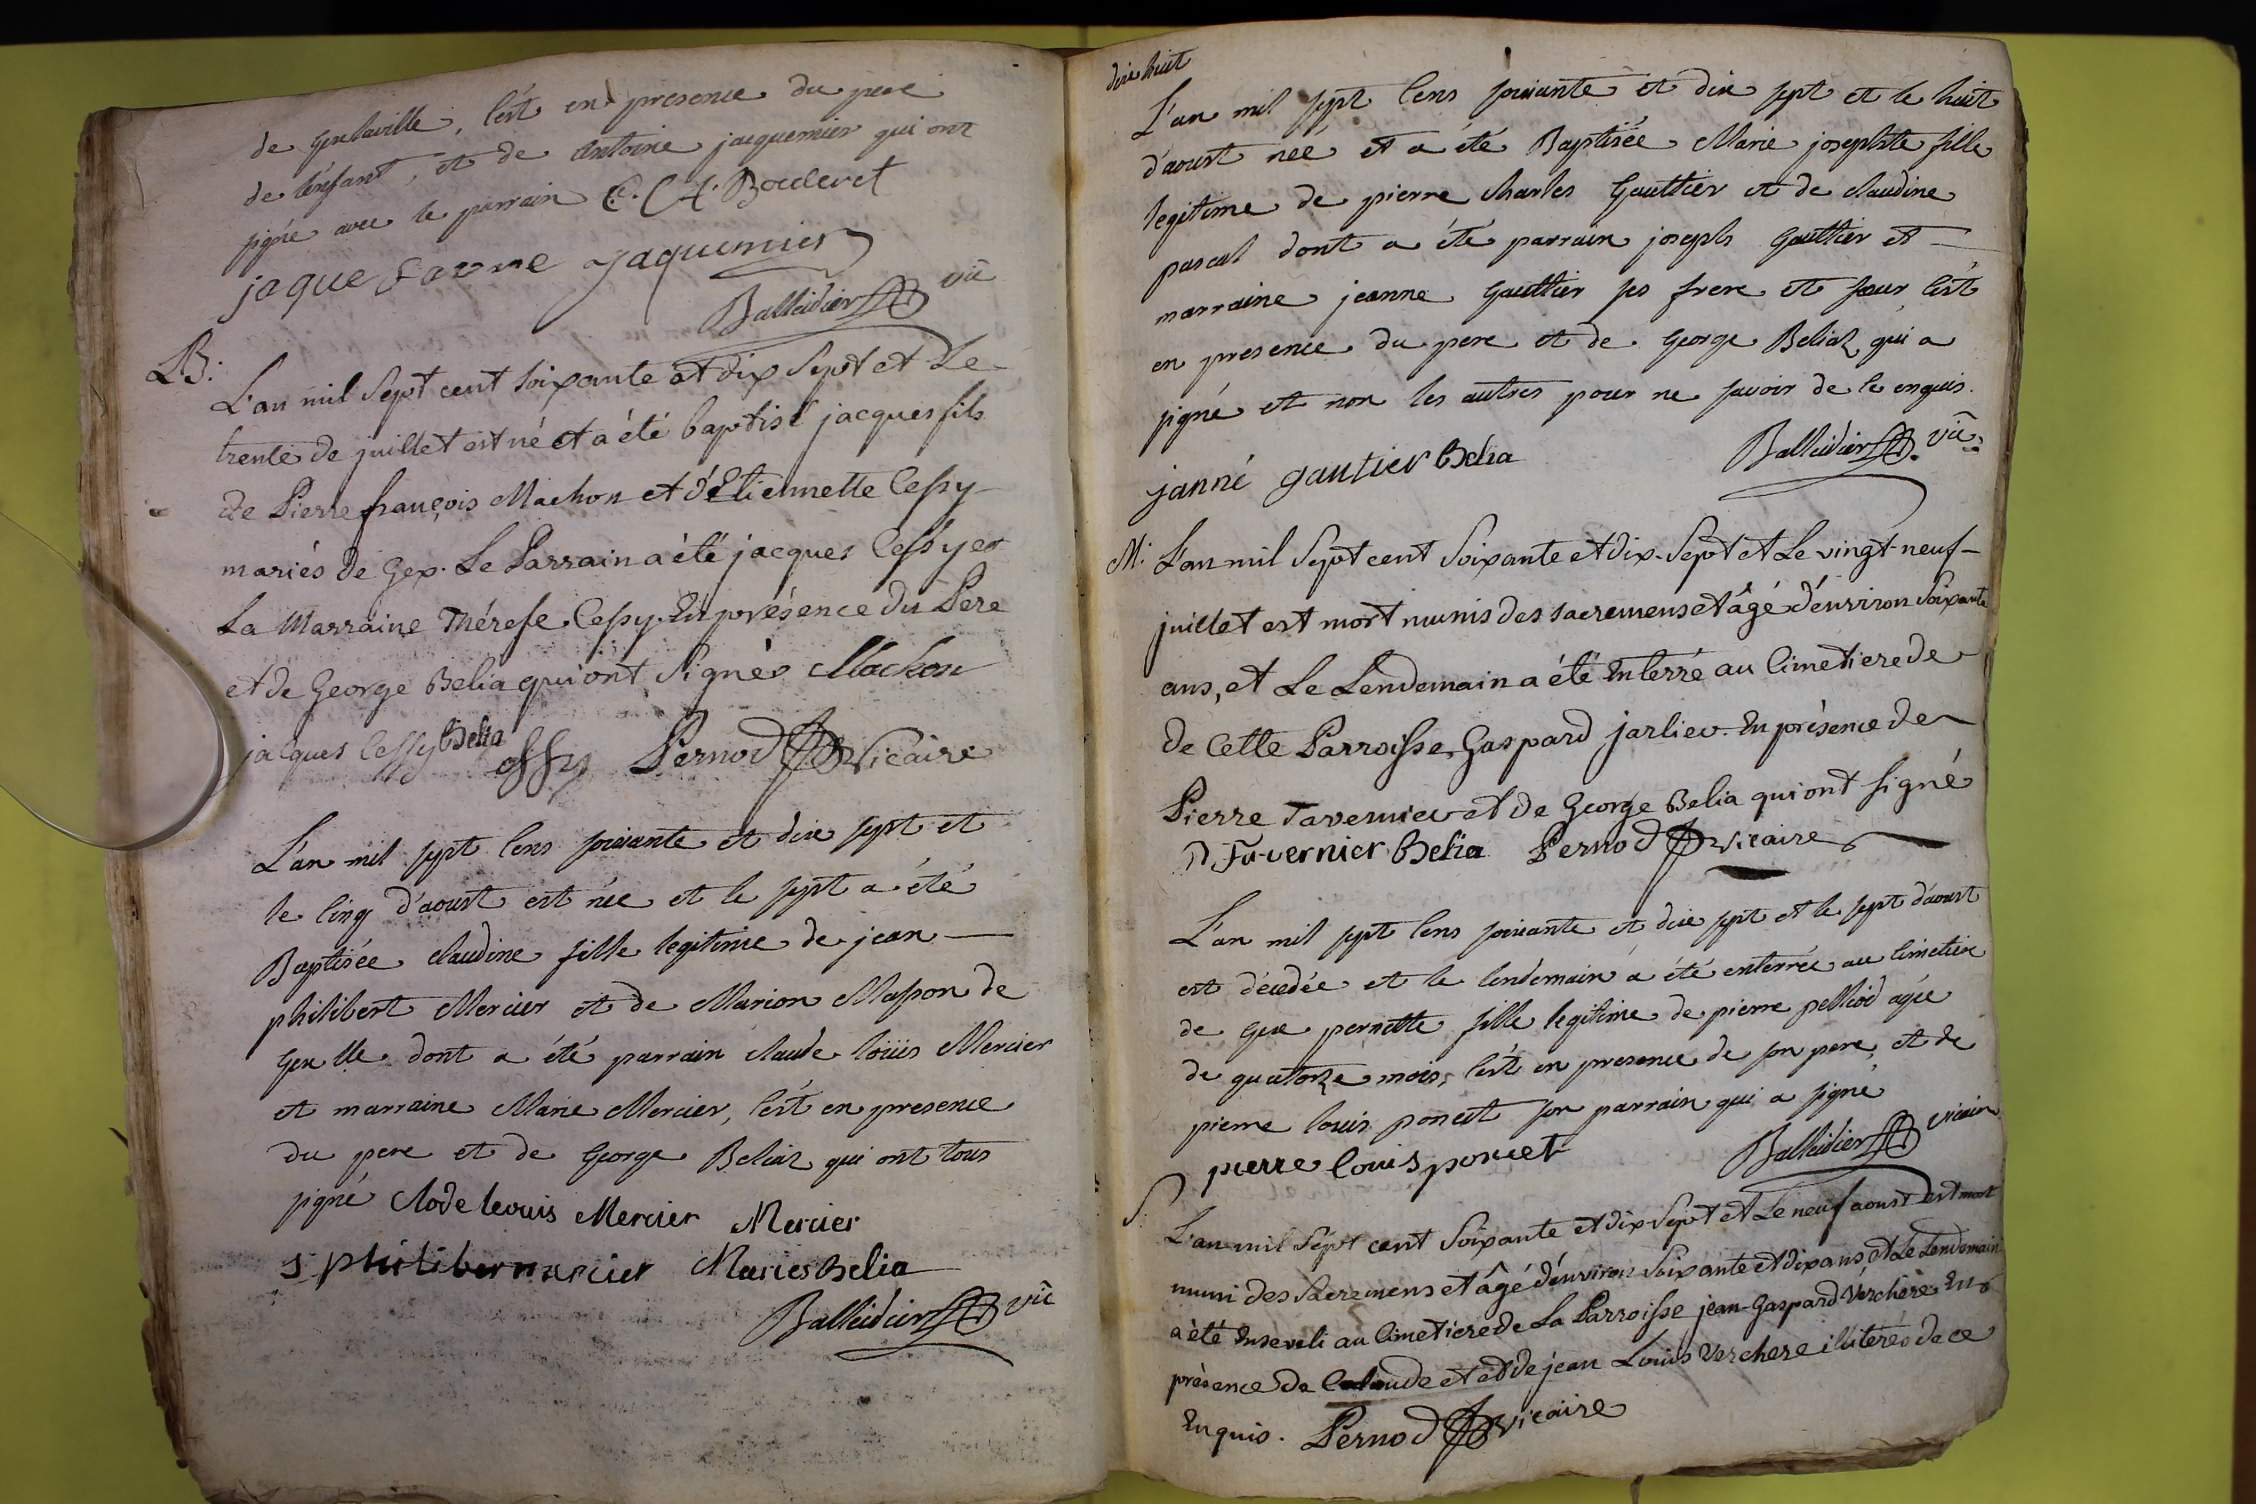 de gexlaville, c'est en presence du pere
de l'enfant, et de Antoine jacquemier qui ont
signé avec le parrain C. Bouderet
jaque favre Jaquemier
Balleidier vic
B:
L'an mil Sept cent soixante et dix Sept et Le
trente de juillet est né et a été baptisé jacques fils
de Pierre françois Machon et d'Etiennette Cessy
mariés de Gex. Le Parrain a été jacques Cessy et
La Marraine Thérese Cessy. En présence du Pere
et de George Belia qui ont Signés Machon
jacques Cessy Belia Pernod Vicaire
L'an mil sept cens soixante et dix sept et
le cinq d'aoust est née et le sept a été
Baptisée claudine fille legitime de jean
philibert Mercier et de Marion Masson de
gex lle dont a été parrain claude loüis Mercier
et marraine Marie Mercier, c'est en presence
du pere et de George Beliaz qui ont tous
signé Clode leouis Mercier Mercier
J philiber marcier Maries Belia
Balleidier vic
dixe huit
L'an mil sept cens soixante et dix sept et le huit
d'aoust née et a été Baptisée Marie josephte fille
legitime de pierre charles Gaultier et de claudine
pascal dont a été parrain joseph Gaultier et
marraine jeanne Gaultier ses frere et sœur c'est
en presence du pere et de George Beliaz qui a
signé et non les autres pour ne savoir de ce enquis.
janné gautier Belia Balleidier vic
M: L'an mil Sept cent Soixante et dix-Sept et Le vingt-neuf
juillet est mort munis des sacremens et âgé d'environ Soixante
ans, et Le Lendemain a été Enterré au Cimetiere de
de Cette Parroisse, Gaspard jarlier. En présence de
Pierre Tavernier et de George Belia qui ont signé
P Tavernier Belia Pernod vicaire
L'an mil sept cens soixante et dix sept et le sept d'aoust
est décedée et le lendemain a été enterrée au cimetiere
de gex pernette fille legitime de pierre pelliod agée
de quatorze mois, c'est en presence de son pere et de
pierre louis poncet son parrain qui a signé
pierre louis poncet Balleidier vicaire
S:
L'an mil Sept cent Soixante et dix-Sept et Le neuf aoust est mort
muni des Sacremens et âgé d'environ Soixante et dix ans, et Le Lendemain
a été Enseveli au Cimetiere de La Parroisse jean-Gaspard Verchere En
présence de Claude et et de jean Louis Verchere illiterés de ce
Enquis. Pernod vicaire